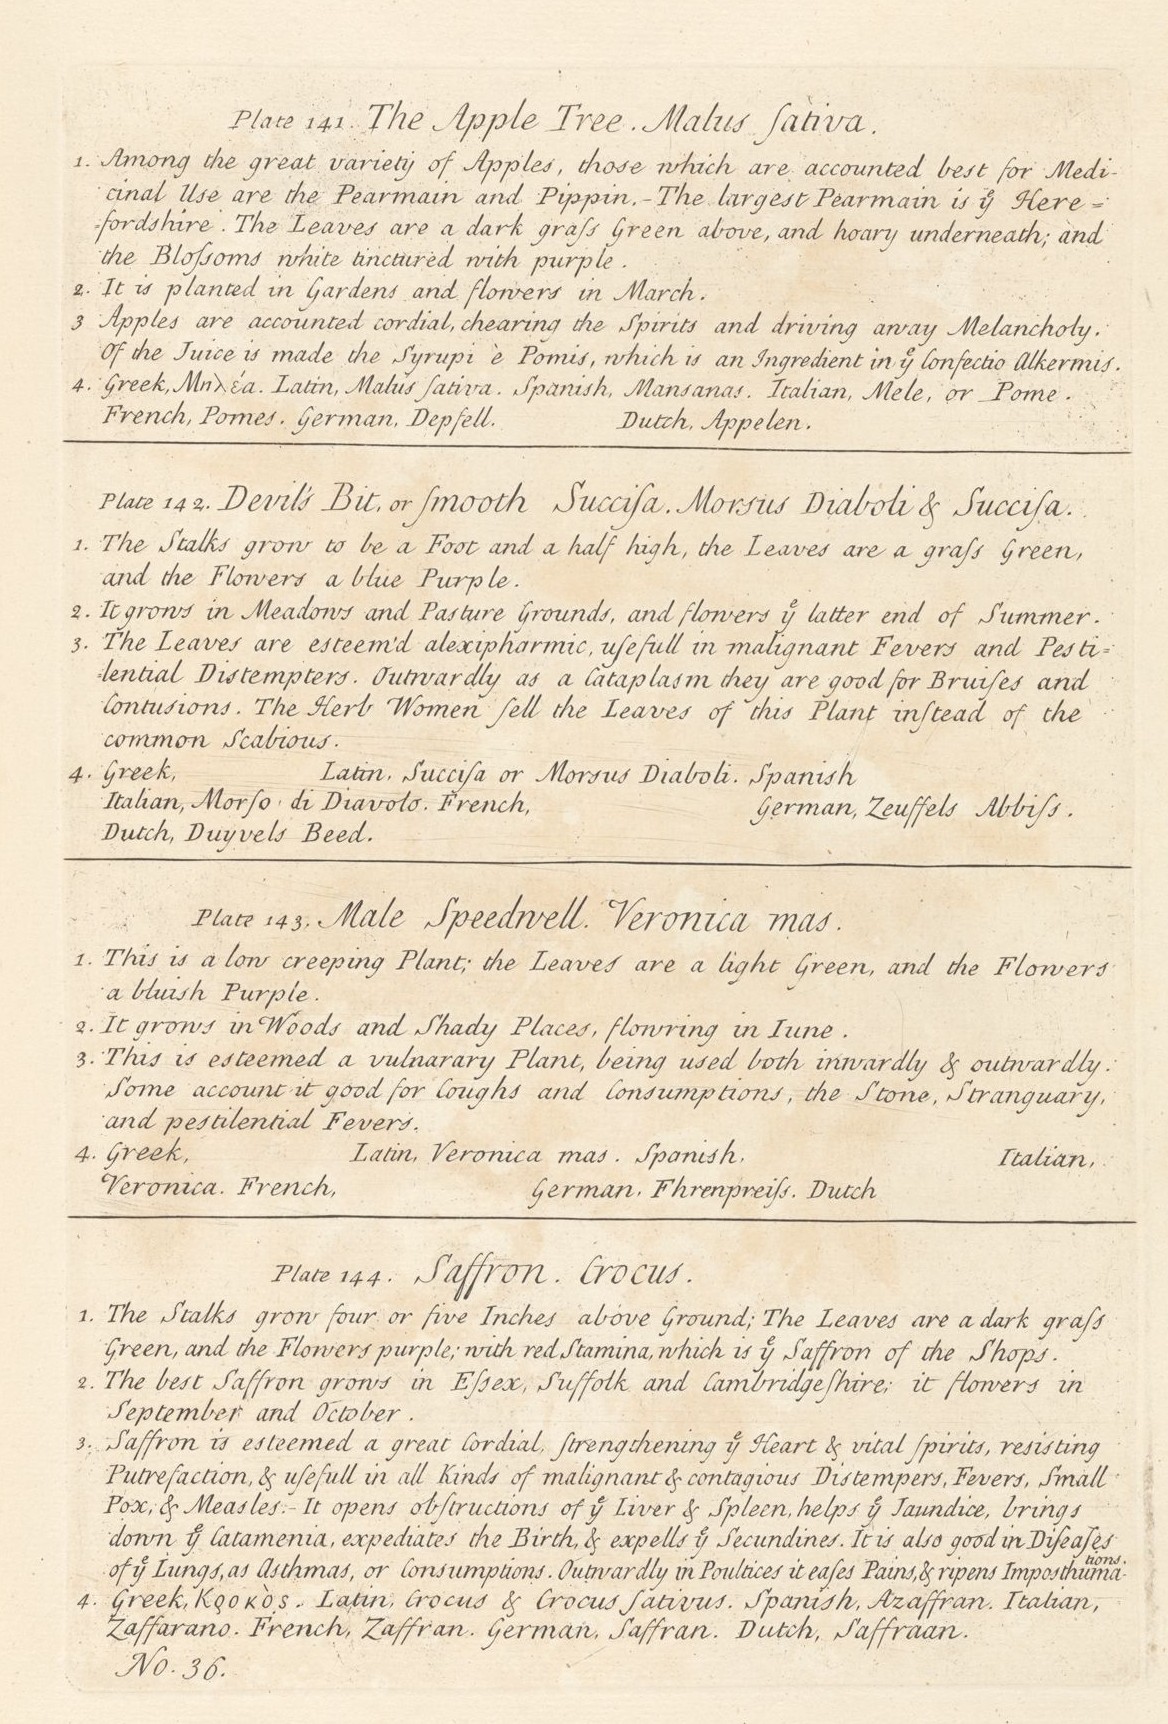 Plate 141. The Apple Tree. Malus ſativa.
1. Among the great variety of Apples, those which are accounted best for Medi-
cinal Use are the Pearmain and Pippin.-The largest Pearmain is yͤ Here=
=fordshire. The Leaves are a dark graſs Green above, and hoary underneath; and
the Bloſsoms white tinctured with purple.
2. It is planted in Gardens and flowers in March.
3 Apples are accounted cordial, chearing the Spirits and driving away Melancholy.
Of the Juice is made the Syrupi è Pomis, which is an Ingredient in yͤ Confectio Alkermis.
4. Greek, Μηλέα. Latin, Malus ſativa. Spanish, Mansanas. Italian, Mele, or Pome.
French, Pomes. German, Depfell. Dutch, Appelen.
Plate 142. Devil's Bit, or ſmooth Succiſa. Morsus Diaboli & Succiſa.
1. The Stalks grow to be a Foot and a half high, the Leaves are a graſs Green,
and the Flowers a blue Purple.
2. It grows in Meadows and Pasture Grounds, and flowers yͤ latter end of Summer.
3. The Leaves are esteem'd alexipharmic, uſefull in malignant Fevers and Pesti=
=lential Distempters. Outwardly as a Cataplasm they are good for Bruiſes and
Contusions. The Herb Women ſell the Leaves of this Plant inſtead of the
common Scabious.
4. Greek, Latin, Succiſa or Morsus Diaboli. Spanish
Italian, Morſo di Diavolo. French, German, Zeuffels Abbiſs.
Dutch, Duyvels Beed.
Plate 143. Male Speedwell. Veronica mas.
1. This is a low creeping Plant; the Leaves are a light Green, and the Flowers
a bluish Purple.
2. It grows in Woods and Shady Places, flowring in Iune.
3. This is esteemed a vulnarary Plant, being used both inwardly & outwardly.
Some account it good for Coughs and Consumptions, the Stone, Stranguary,
and pestilential Fevers.
4. Greek, Latin, Veronica mas. Spanish, Italian,
Veronica. French, German, Fhrenpreiſs. Dutch
Plate 144. Saffron. Crocus.
1. The Stalks grow four or five Inches above Ground; The Leaves are a dark graſs
Green, and the Flowers purple; with red Stamina, which is yͤ Saffron of the Shops.
2. The best Saffron grows in Eſsex, Suffolk and Cambridgeſhire; it flowers in
September and October.
3. Saffron is esteemed a great Cordial, ſtrengthening yͤ Heart & vital ſpirits, resisting
Putrefaction, & uſefull in all Kinds of malignant & contagious Distempers, Fevers, Small
Pox, & Measles.- It opens obſtructions of yͤ Liver & Spleen, helps yͤ Jaundice, brings
down yͤ Catamenia, expediates the Birth, & expells yͤ Secundines. It is also good in Diſeaſes
of yͤ Lungs, as Asthmas, or Consumptions. Outwardly in Poultices it eaſes Pains, & ripens Imposthuma-
tions.
4. Greek, Κροκὸς. Latin, Crocus & Crocus ſativus. Spanish, Azaffran. Italian,
Zaffarano. French, Zaffran. German, Saffran. Dutch, Saffraan.
No. 36.